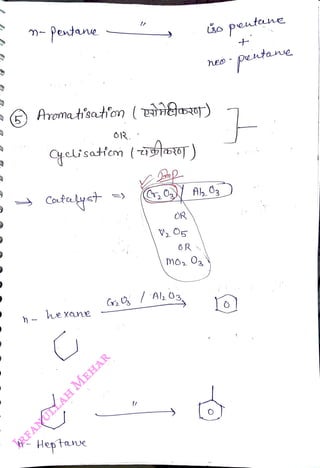 n- Pentane → iso pentane
+
neo- pentane
⑤ Aromatisation ( एरोमेटीकरण )
OR
Cyclisation ( चक्रीकरण )
⇒ Catalyst ⇒ Cr2O3 / Al2O3
OR
V2O5
OR
MO2O3
n- hexane Cr2O3 / Al2O3 →
IRFANULLAH MEHAR
n- Heptane